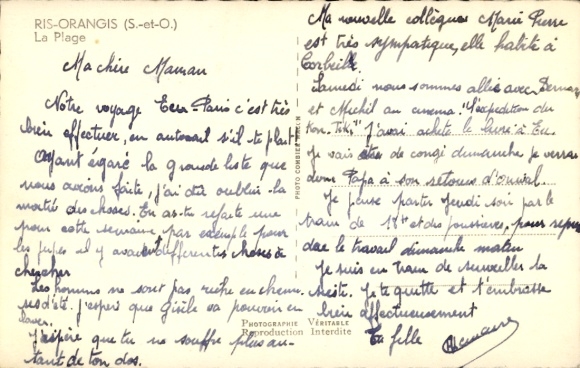 RIS-ORANGIS (S.-et-O.)
La Plage
Ma chère Maman
Notre voyage Eu-Paris c'est très
bien effectuer, en autorail s'il te plait
Ayant égaré la grande liste que
nous avions faite, j'ai dû oublier la
moitié des choses. En as-tu refaite une
pour cette semaine par exemple pour
les jupes il y avait différentes choses à
chercher
Les hommes ne sont pas riche en chemi
ses d'été. J'espère que Gisèle va pouvoir en
laver.
J'espère que tu ne souffre plus au-
tant de ton dos.
PHOTO COMBIER MACON
PHOTOGRAPHIE VÉRITABLE
Reproduction Interdite
Ma nouvelle collègue Marie Pierre
est très sympatique, elle habite à
Corbeille
Samedi nous sommes allés avec
et Michel au cinema. "L'expédition du
Kon. Tiki" J'avai acheté le livre à Eu.
Je vais être de congé dimanche je verrai
donc Papa à son retour d'
Je pense partir Jeudi soir par le
train de et des poussières, pour repren
dre le travail dimanche matin
Je suis en train de surveiller la
sieste. Je te quitte et t'embrasse
bien affectueusement
Ta fille